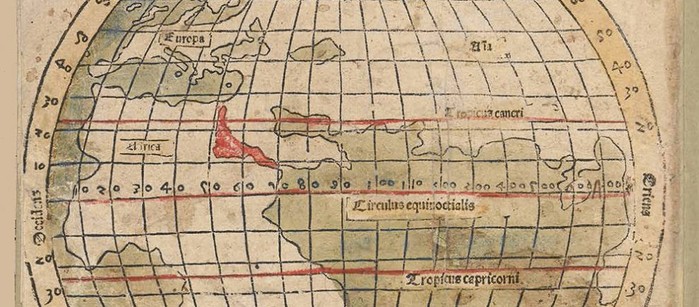 Europa
Asia
50
50
40
40
30
30
Tropicus cancri
20
Africa
10
10
10 20 30 40 50 60 70 80 90 100 110
Circulus equinoctialis
Occidens
Oriens
20
20
Tropicus capricorni
30
30